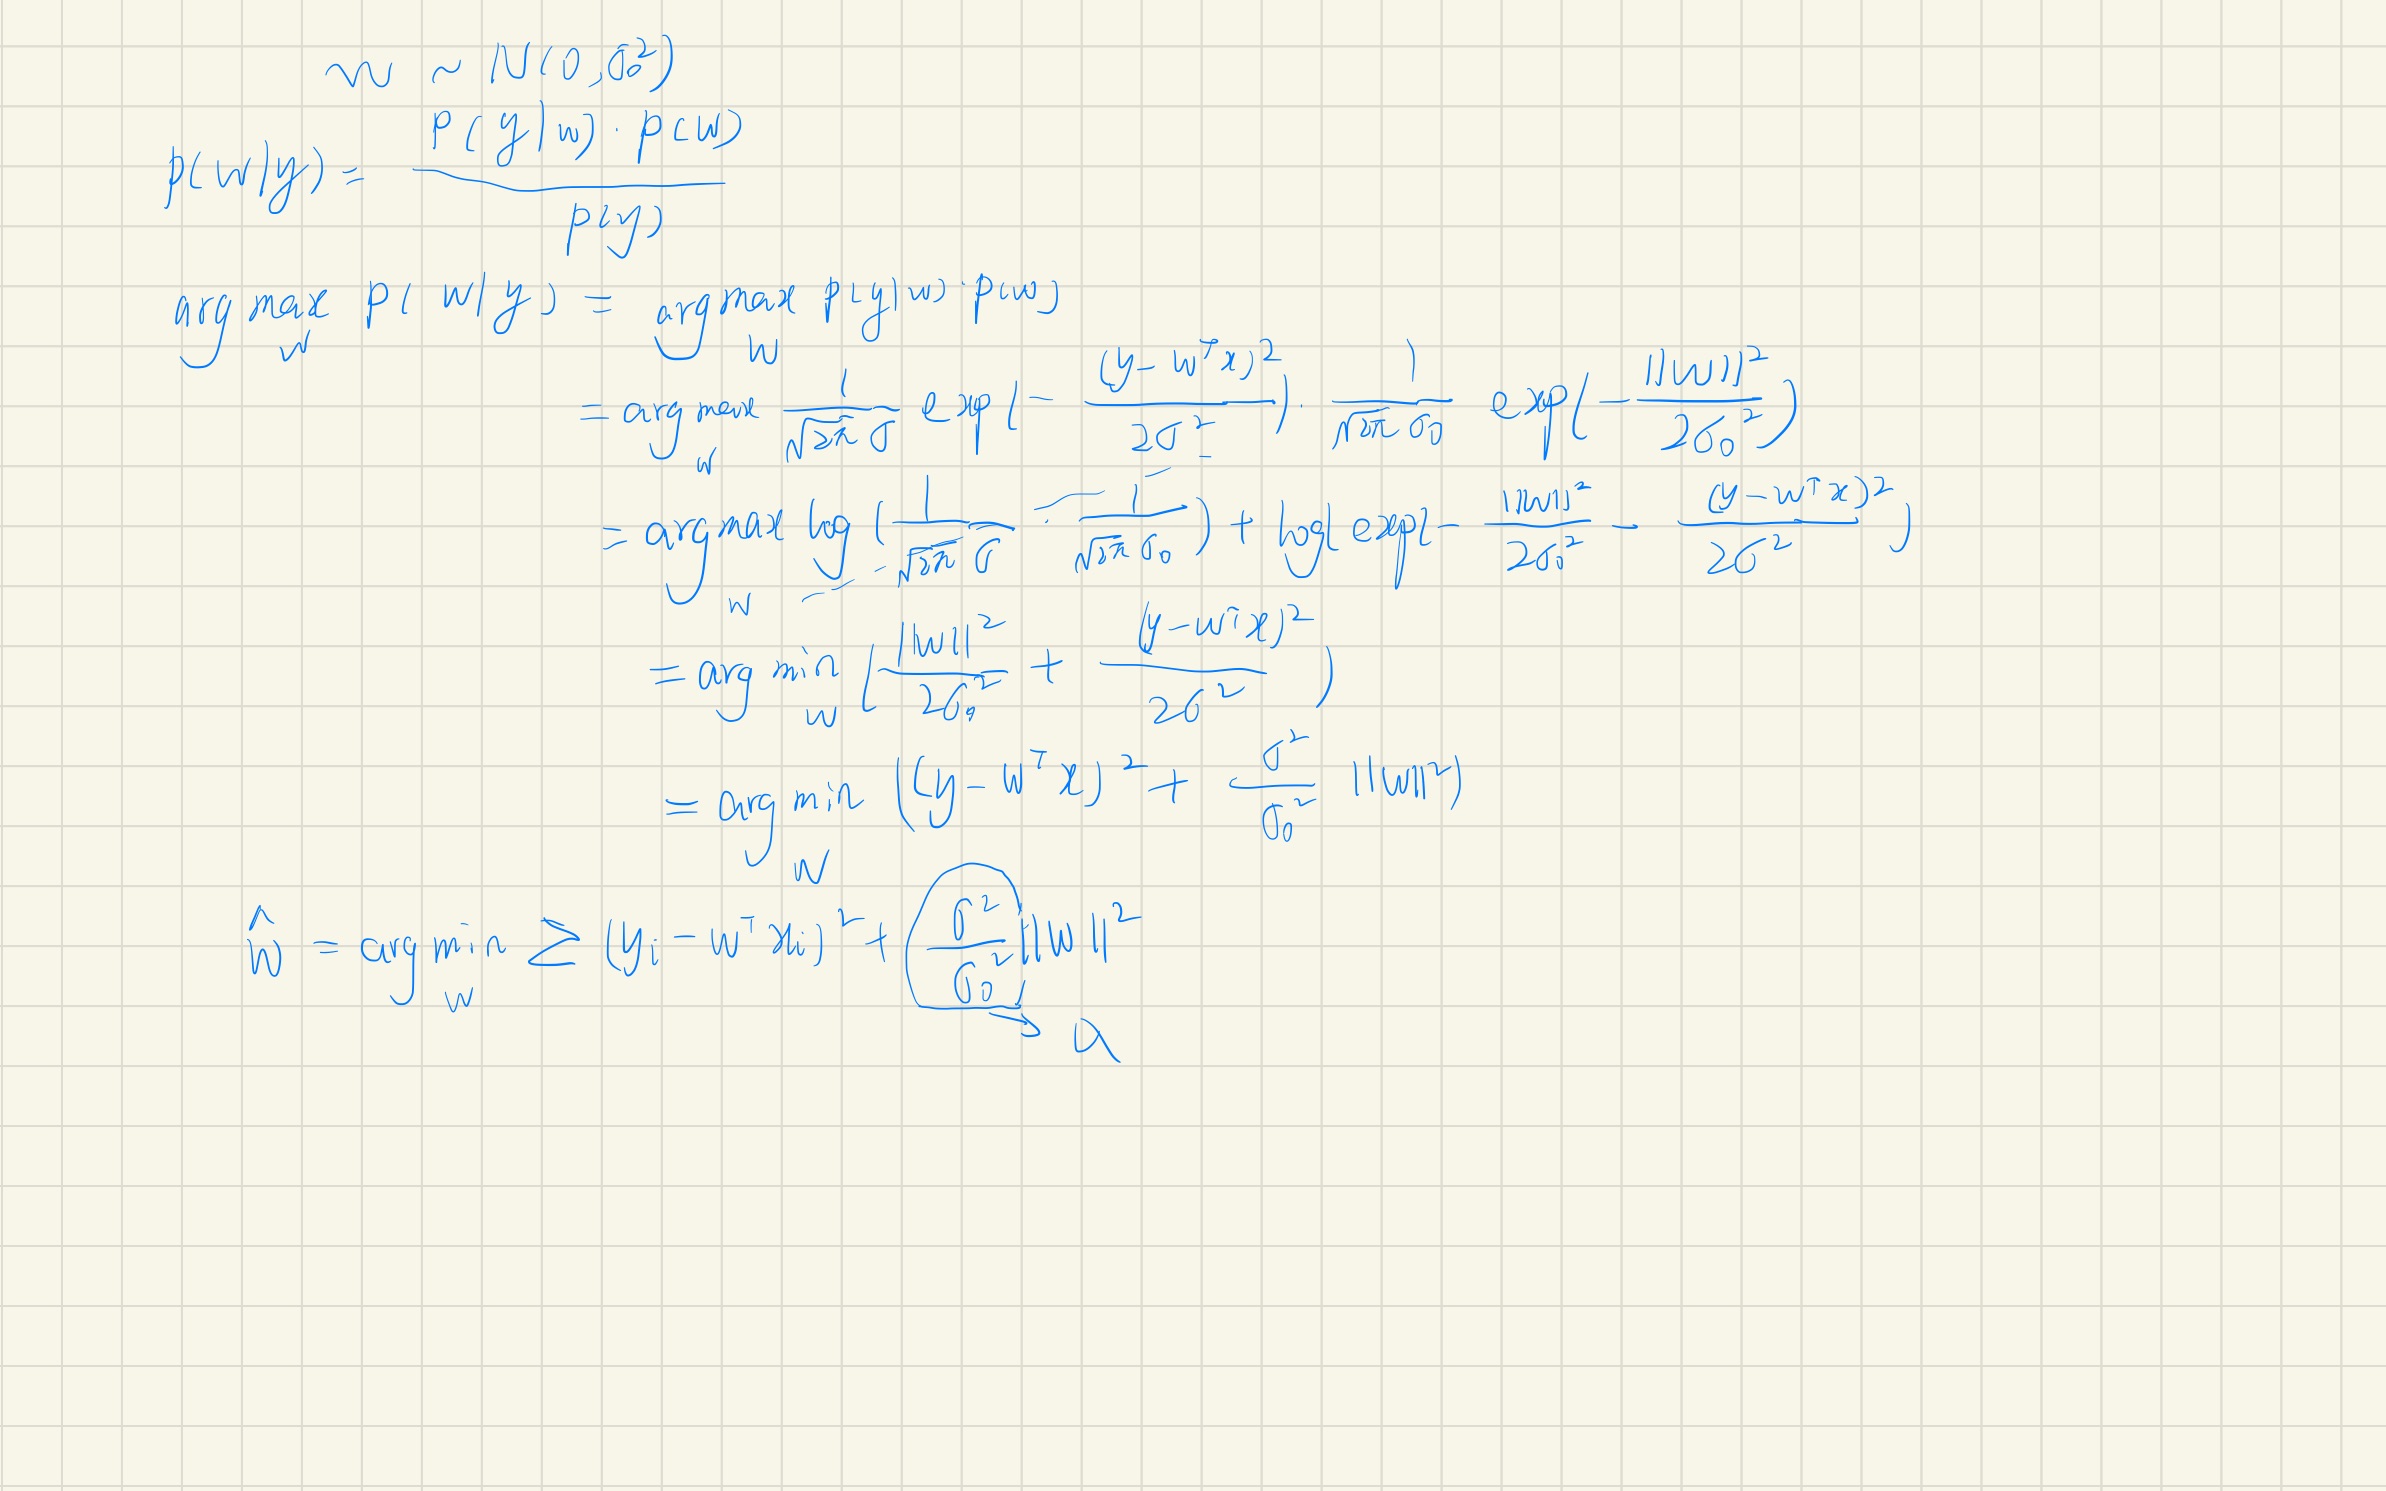 w ~ N(0, σ₀²)
p(w|y) = P(y|w) · p(w) / p(y)
arg max_w P(w|y) = arg max_w P(y|w) · P(w)
= arg max_w 1/(√2π σ) exp(- (y - wᵀx)²/(2σ²)) · 1/(√2π σ₀) exp(- ||w||²/(2σ₀²))
= arg max_w log (1/(√2π σ) · 1/(√2π σ₀)) + log(exp(- ||w||²/(2σ₀²) - (y - wᵀx)²/(2σ²))
= arg min_w (||w||²/(2σ₀²) + (y - wᵀx)²/(2σ²))
= arg min_w ((y - wᵀx)² + σ²/σ₀² ||w||²)
ŵ = arg min_w Σ (yᵢ - wᵀxᵢ)² + σ²/σ₀² ||w||²
→ a